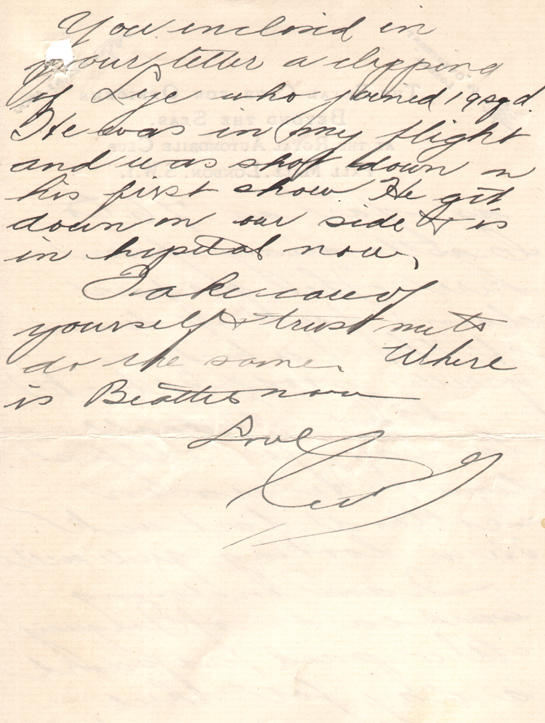 You enclosed in
your letter a clipping
of Lye who joined 19 sqd.
He was in my flight
and was shot down on
his first show. He got
down on our side & is
in hospital now.
Take care of
yourself & trust me to
do the same. Where
is Beattie now
Love